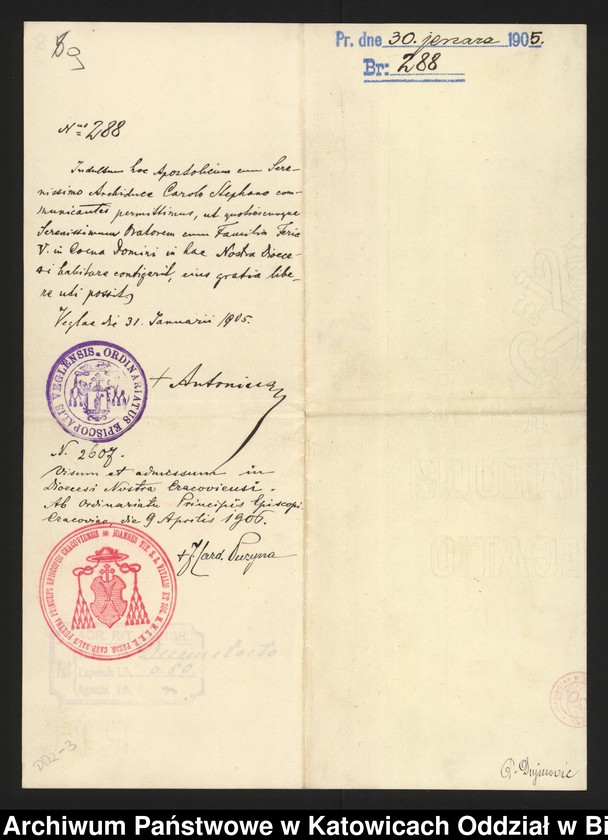 Pr. dne 30. jenara 1905.
Br: 288
Nus 288
Indultum hoc Apostolicum cum Sere-
nissimo Archiduce Carolo Stephano com-
municantes permittimus, ut quotiescunque
Serenissimum Oratorem cum Familia Feria
V. in Coena Domini in hac Nostra Dioece-
si habitare contigerit, eius gratia libe-
re uti possit,
Veglae die 31. Januarii 1905.
ORDINARIATUS EPISCOPALIS VEGLENSIS
+ Antonius
N. 2607.
Visum et admissum in
Dioecesi Nostra Cracoviensi.
Ab Ordinariatu Principis Episcopi
Cracoviae, die 9 Aprilis 1906.
+ J Card. Puzyna
PRINCEPS EPISCOPUS CRACOVIENSIS
DD2-3
Archiwum Państwowe w Katowicach Oddział w Bi